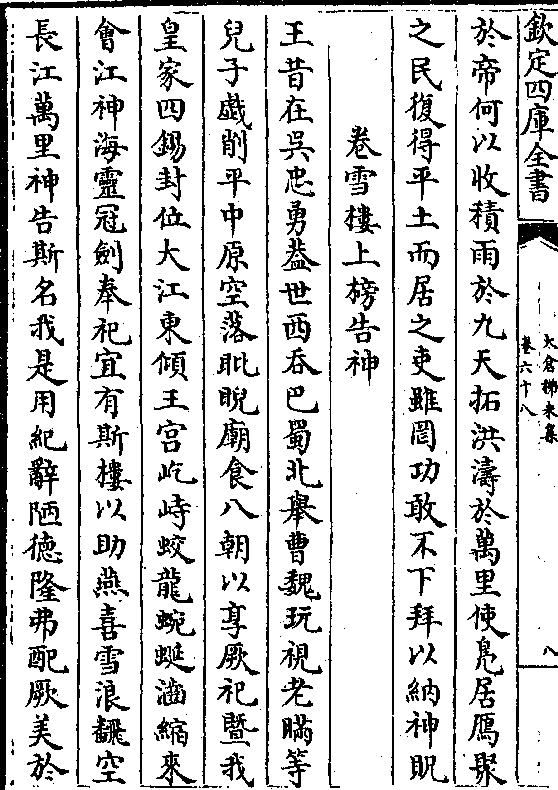 欽定四庫全書
太倉稊米集
卷六十八
八
於帝何以收積雨於九天拓洪濤於萬里使鳬居鴈聚
之民復得平土而居之吏雖罔功敢不下拜以納神貺
卷雪樓上榜告神
王昔在吳忠勇葢世西吞巴蜀北舉曹魏玩視老瞞等
兒子戯削平中原空落睥睨廟食八朝以享厥祀暨我
皇家四錫封位大江東傾王宫屹峙蛟龍蜿蜒潏縮來
會江神海靈冠劍奉祀宜有斯樓以助燕喜雪浪飜空
長江萬里神告斯名我是用紀辭陋德隆弗配厥美於